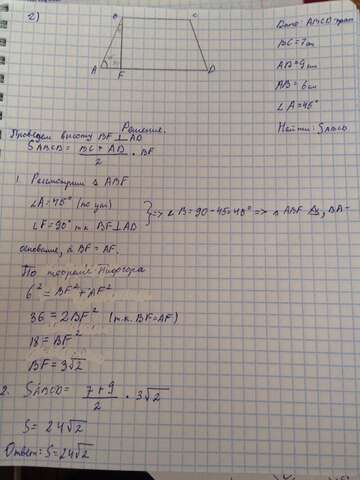 2)
B
C
A
F
D
Дано: ABCD-трап
BC=7см
AD=9см
AB=6см
∠A=45°
Найти: SABCD
Решение.
Проведем высоту BF⊥AD
SABCD = BC+AD/2 · BF
1. Рассмотрим Δ ABF
∠A=45° (по усл)
∠F=90° т.к. BF⊥AD
} => ∠B=90-45=45° => Δ ABF, BA-
основание, а BF=AF.
По теореме Пифагора
6²=BF²+AF²
36=2BF² (т.к. BF=AF)
18=BF²
BF=3√2
2. SABCD= 7+9/2 · 3√2
S=24√2
Ответ: S=24√2